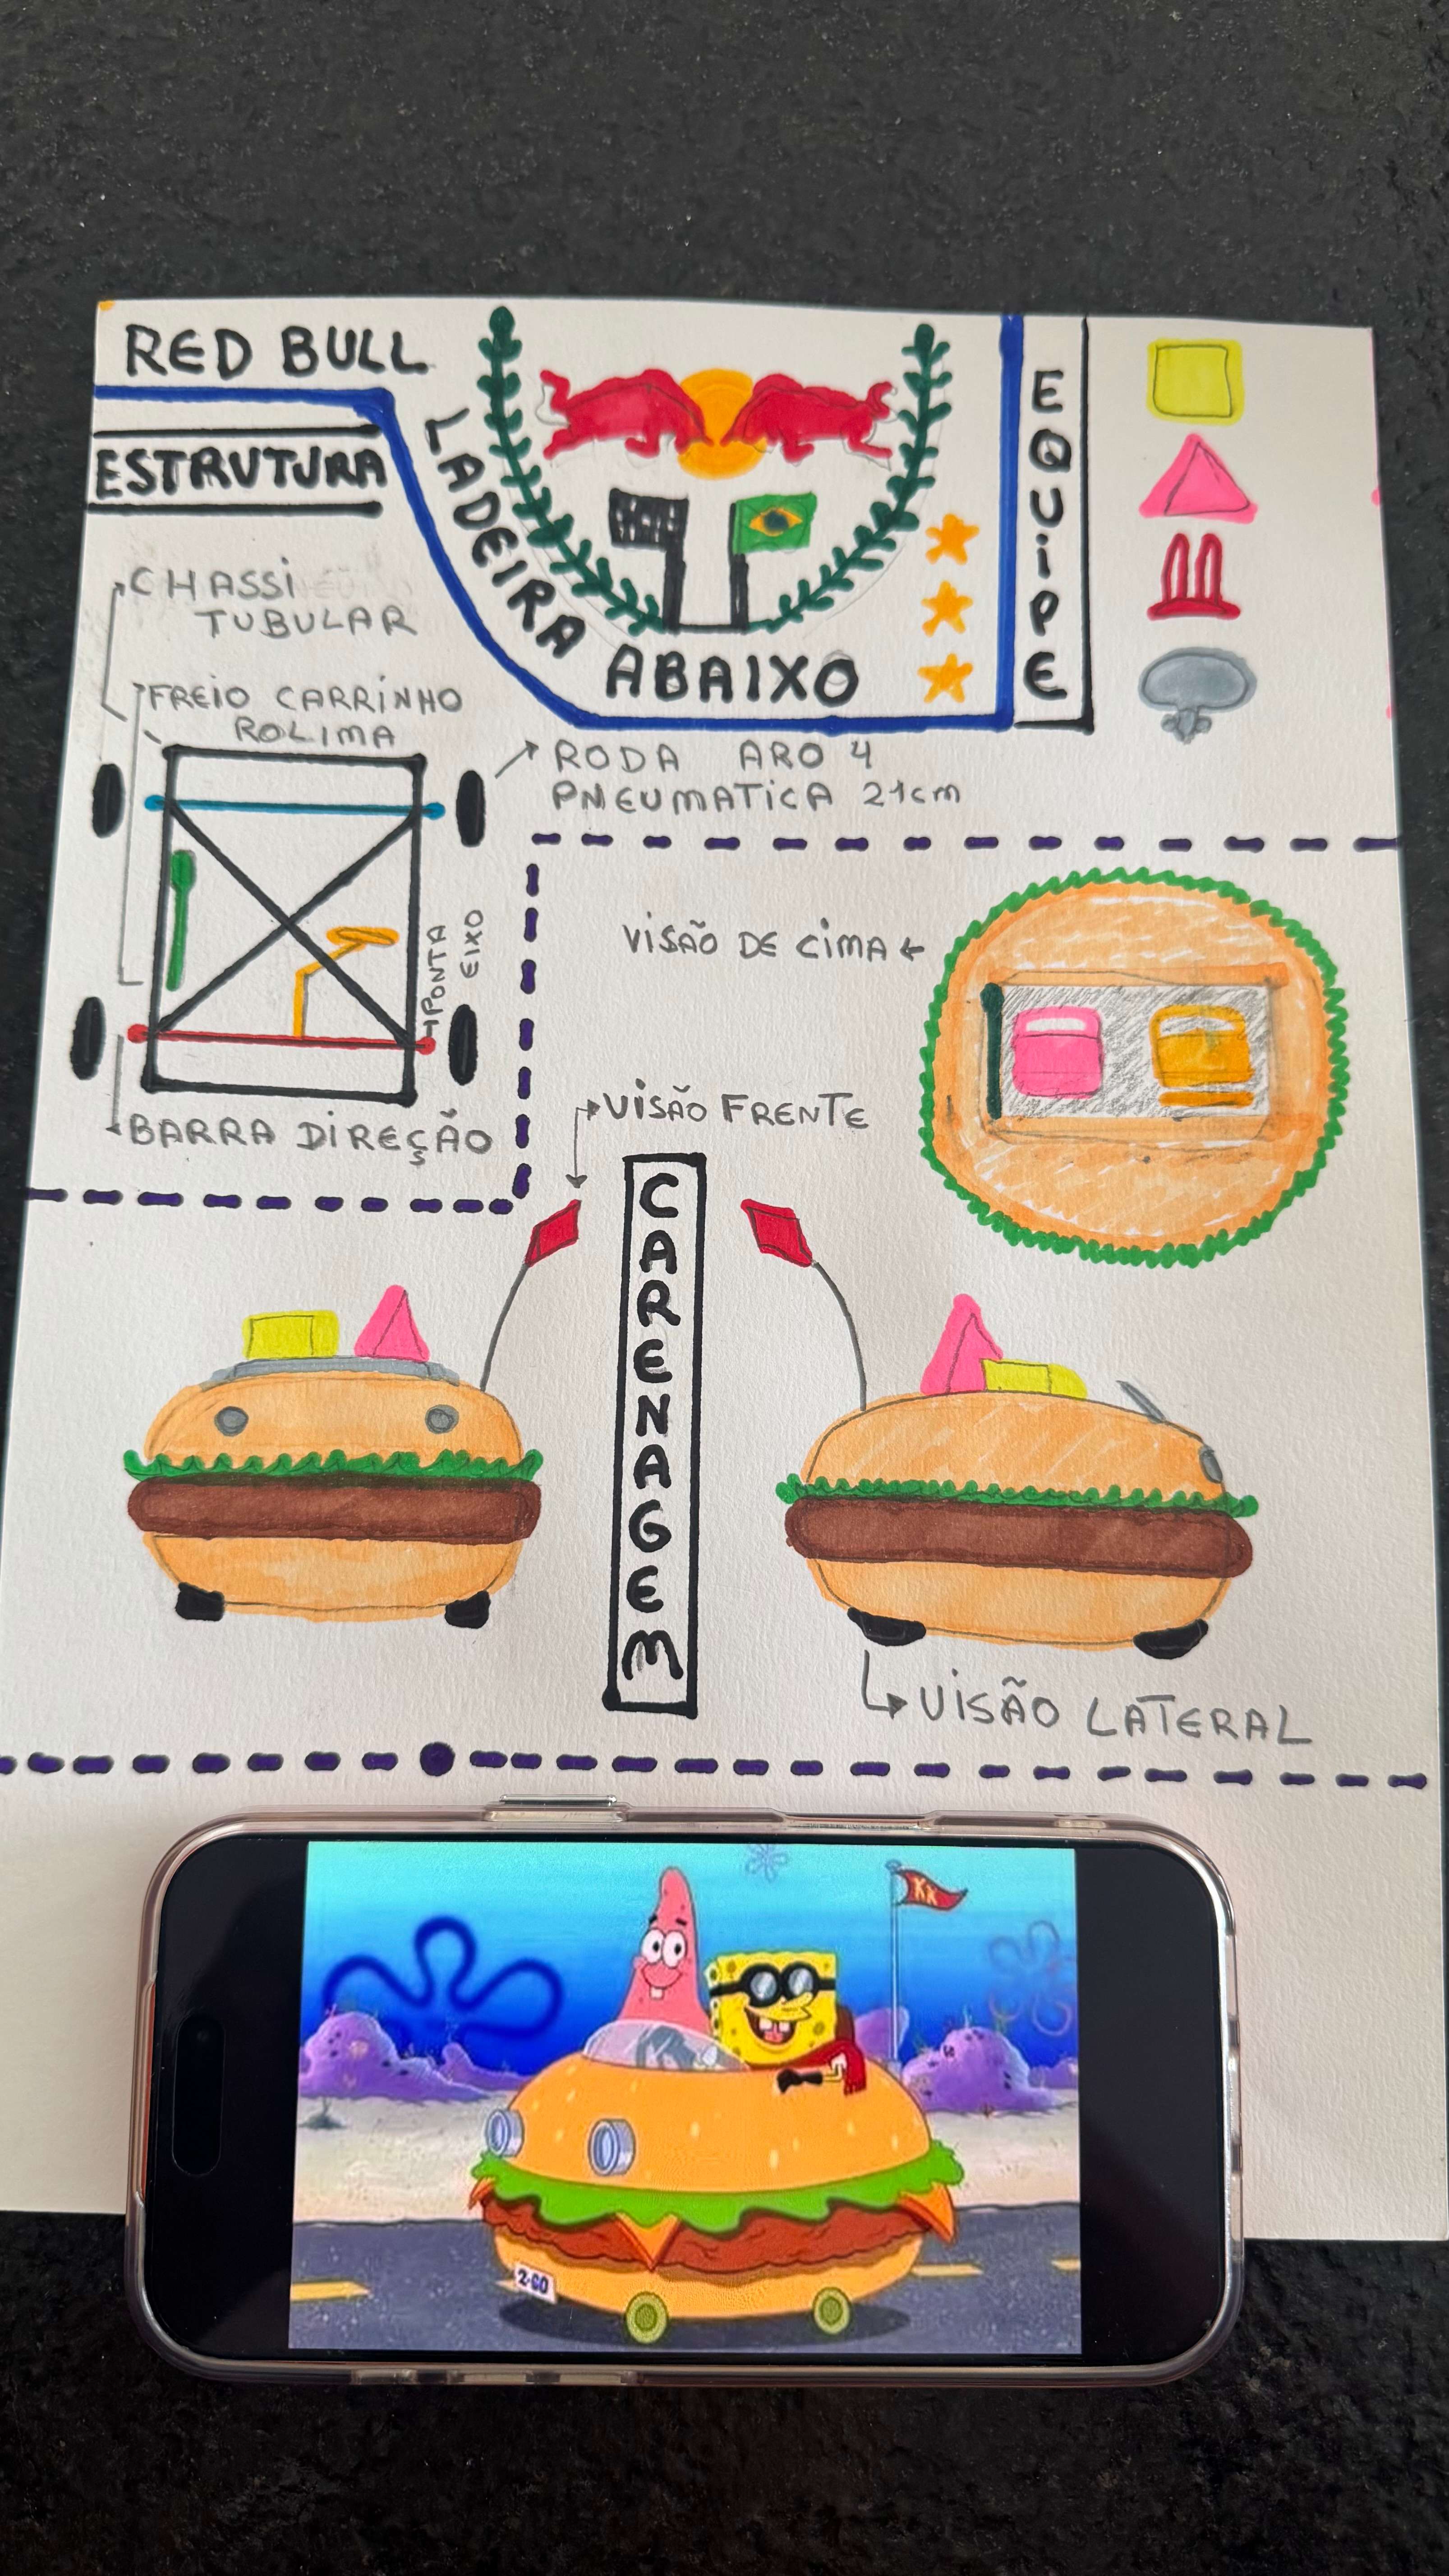 RED BULL
LADEIRA ABAIXO
EQUiPE
ESTRUTURA
CHASSi
TUBULAR
FREiO CARRiNHO
ROLIMA
RODA ARO 4
PNEUMATiCA 21cm
PONTA
EIXO
BARRA DiREÇÃO
ViSÃO DE CiMA
ViSÃO FRENTE
CARENAGEM
ViSÃO LATERAL
KK
2-GO